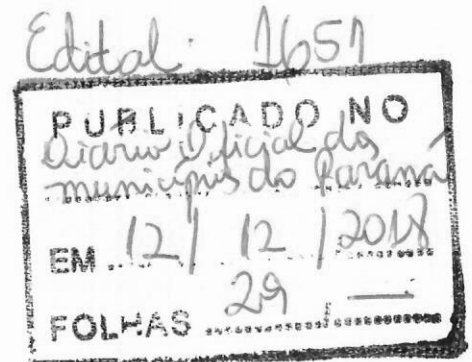 Edital: 1651
PUBLICADO NO
Diário Oficial dos
municípios do Paraná
EM 12 / 12 / 2018
FOLHAS 29 / —